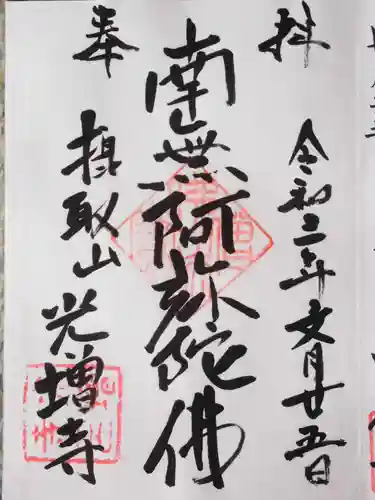 奉拝
南無阿弥陀佛
令和二年文月廿五日
摂取山
光増寺